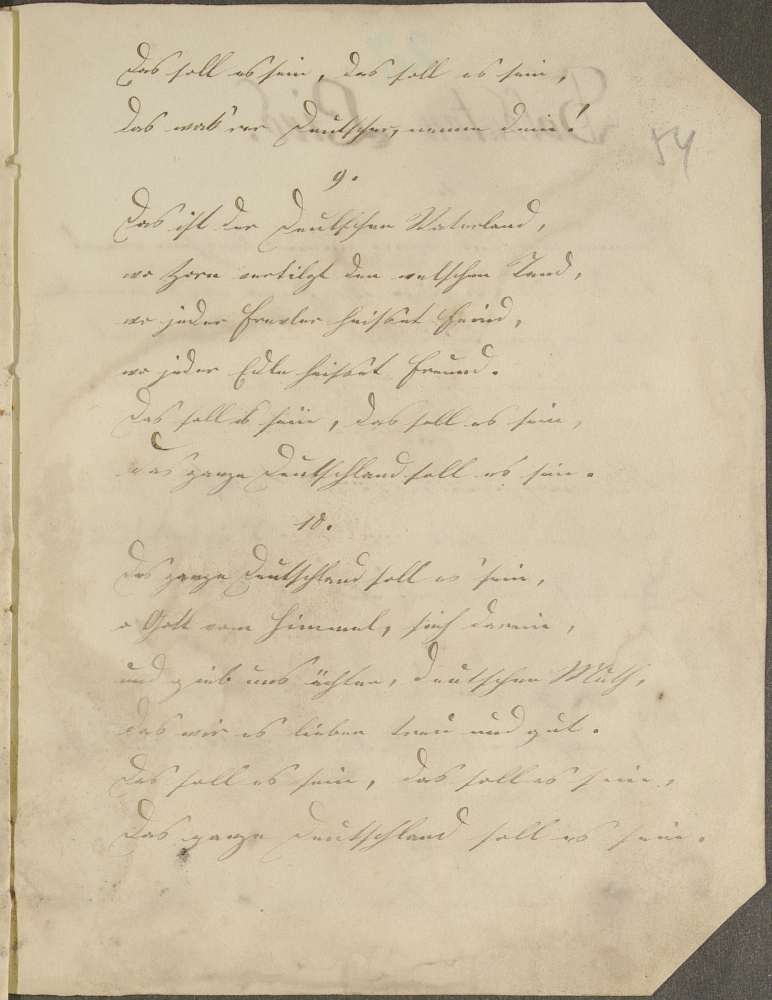 Das soll es sein, das soll es sein,
das wak'rer Deutscher, nenne dein!
54
9.
Das ist der Deutschen Vaterland,
wo Zorn vertilgt den welschen Tand,
wo jeder Frevler heisset Feind,
wo jeder Edle heisset Freund.
Das soll es sein, das soll es sein,
das ganze Deutschland soll es sein.
10.
Das ganze Deutschland soll es sein,
o Gott vom Himmel, sieh darein,
und gieb uns ächten, deutschen Muth,
das wir es lieben treu und gut.
Das soll es sein, das soll es sein,
Das ganze Deutschland soll es sein.